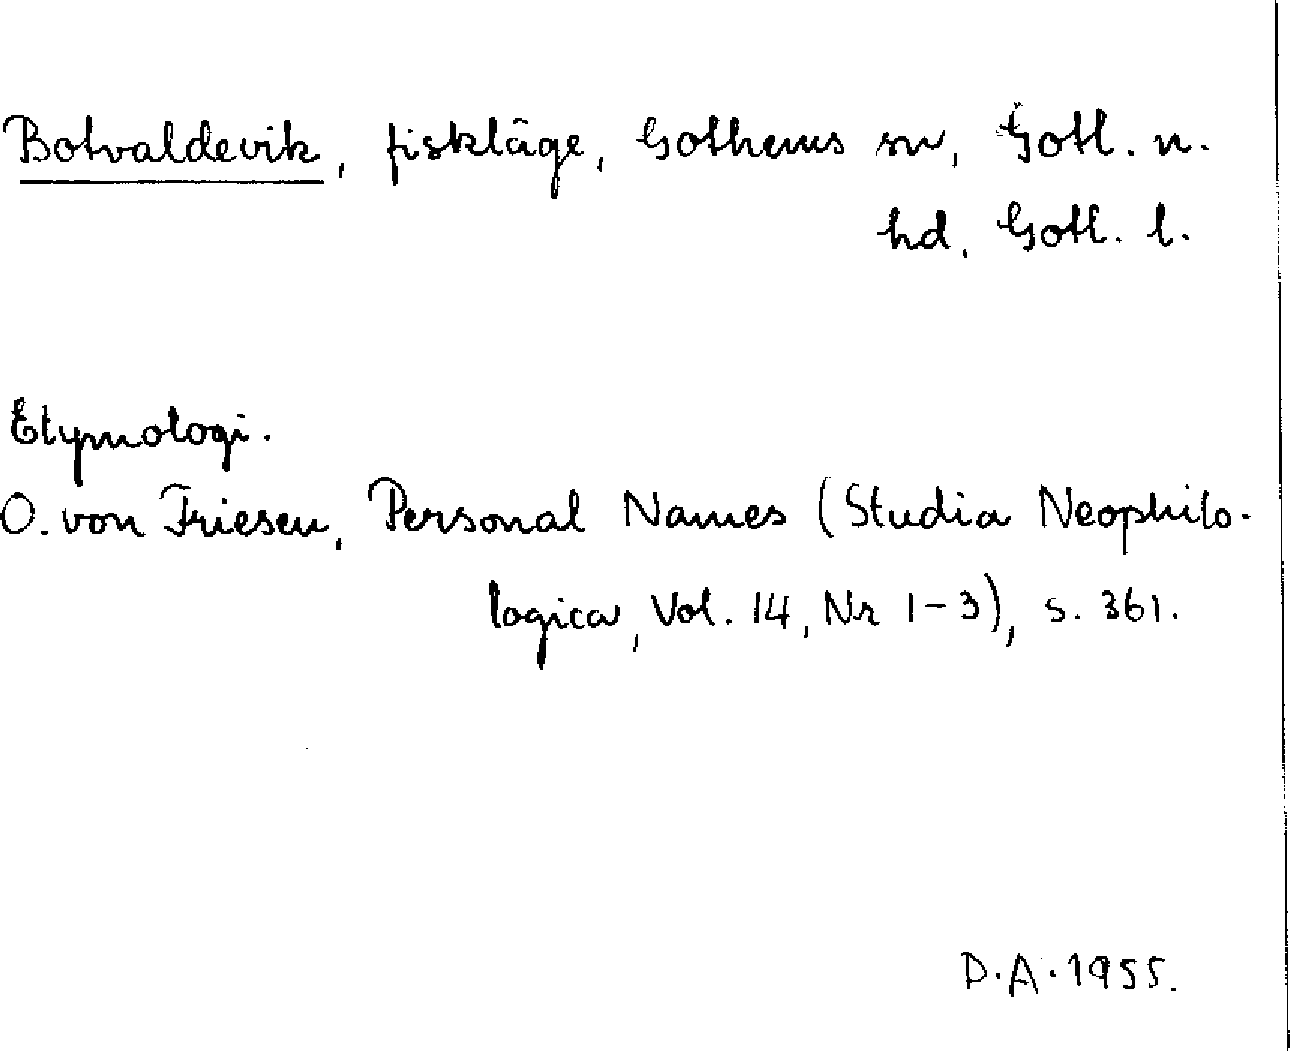 Botvaldevik, fiskläge, Gothems sn, Gotl. n.
hd, Gotl. l.
Etymologi.
O. von Friesen, Personal Names (Studia Neophilo-
logica, Vol. 14, Nr 1-3), s. 361.
D.A. 1955.